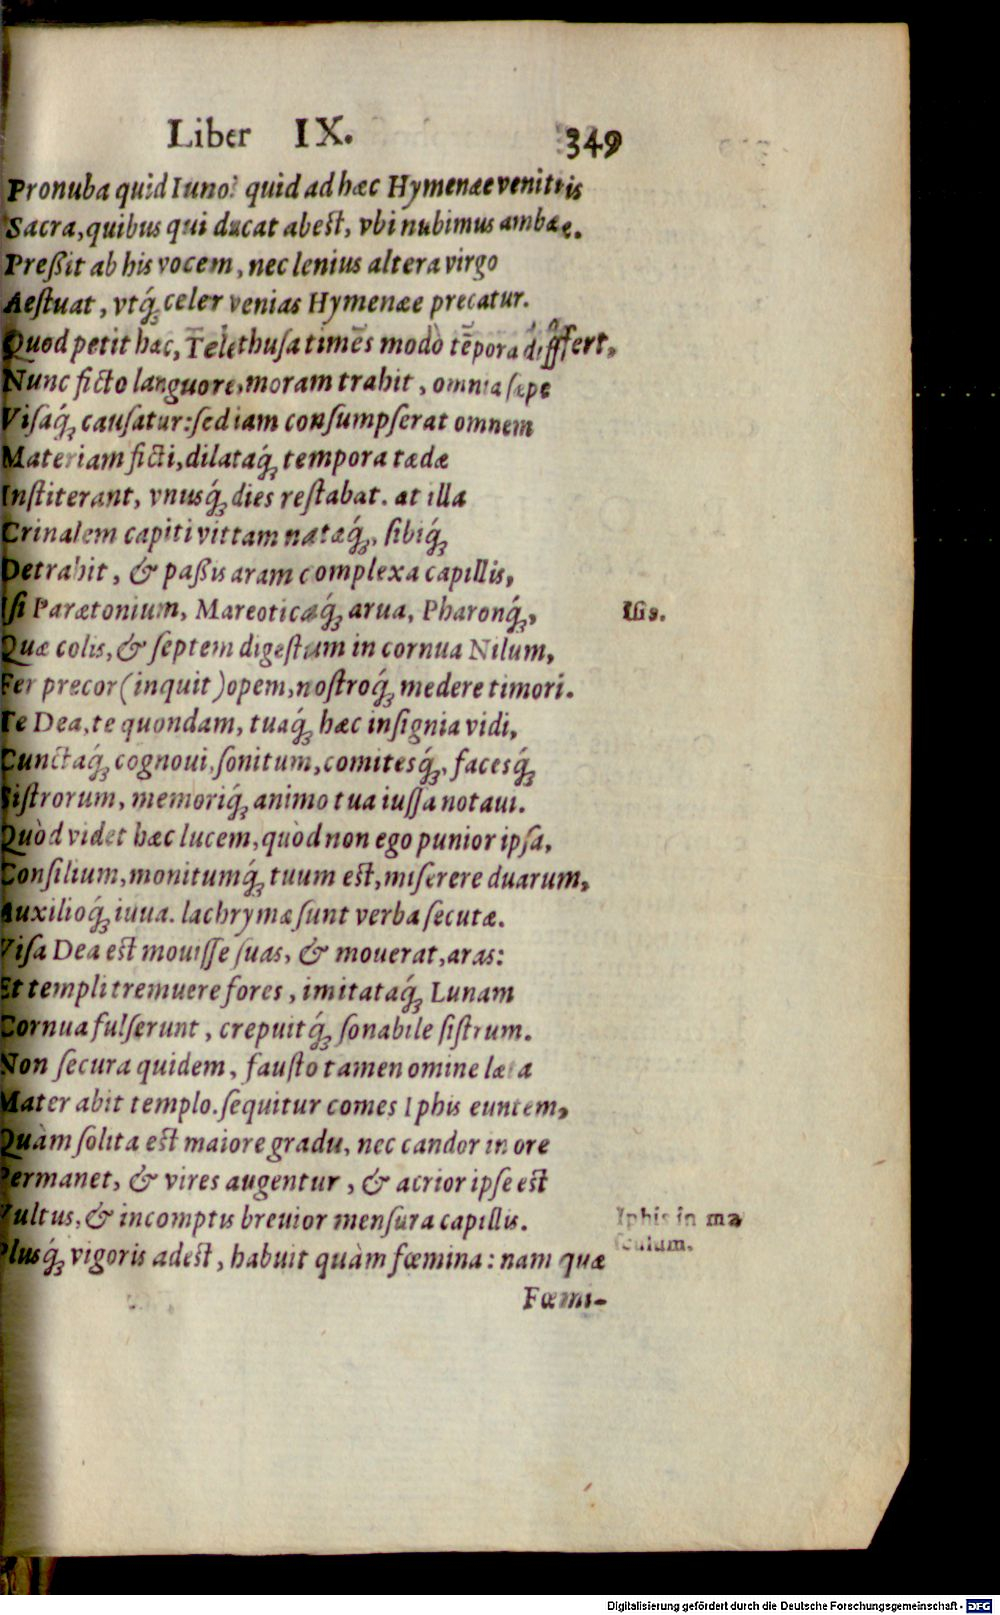 Liber IX. 349
Pronuba quid Iuno? quid ad hæc Hymenæe venitis
Sacra, quibus qui ducat abest, vbi nubimus ambæ.
Preßit ab his vocem, nec lenius altera virgo
Aestuat, vtq́; celer venias Hymenæe precatur.
Quod petit hæc, Telethusa timẽs modò tẽpora differt,
Nunc ficto languore, moram trahit, omnia sæpe
Visaq́; causatur: sed iam consumpserat omnem
Materiam ficti, dilataq́; tempora tædæ
Institerant, vnusq́; dies restabat. at illa
Crinalem capiti vittam natæq́;, sibiq́;
Detrahit, & paßis aram complexa capillis,
Isi Parætonium, Mareoticaq́; arua, Pharonq́;,
Quæ colis, & septem digestum in cornua Nilum,
Fer precor (inquit) opem, nostroq́; medere timori.
Te Dea, te quondam, tuaq́; hæc insignia vidi,
Cunctaq́; cognoui, sonitum, comitesq́;, facesq́;
Sistrorum, memoriq́; animo tua iussa notaui.
Quòd videt hæc lucem, quòd non ego punior ipsa,
Consilium, monitumq́; tuum est, miserere duarum,
Auxilioq́; iuua. lachrymæ sunt verba secutæ.
Visa Dea est mouisse suas, & mouerat, aras:
Et templi tremuere fores, imitataq́; Lunam
Cornua fulserunt, crepuitq́; sonabile sistrum.
Non secura quidem, fausto tamen omine læta
Mater abit templo. sequitur comes Iphis euntem,
Quàm solita est maiore gradu, nec candor in ore
Permanet, & vires augentur, & acrior ipse est
Vultus, & incomptis breuior mensura capillis.
Plusq́; vigoris adest, habuit quàm fœmina: nam quæ
Fœmi-
Isis.
Iphis in ma
sculum.
Digitalisierung gefördert durch die Deutsche Forschungsgemeinschaft - DFG